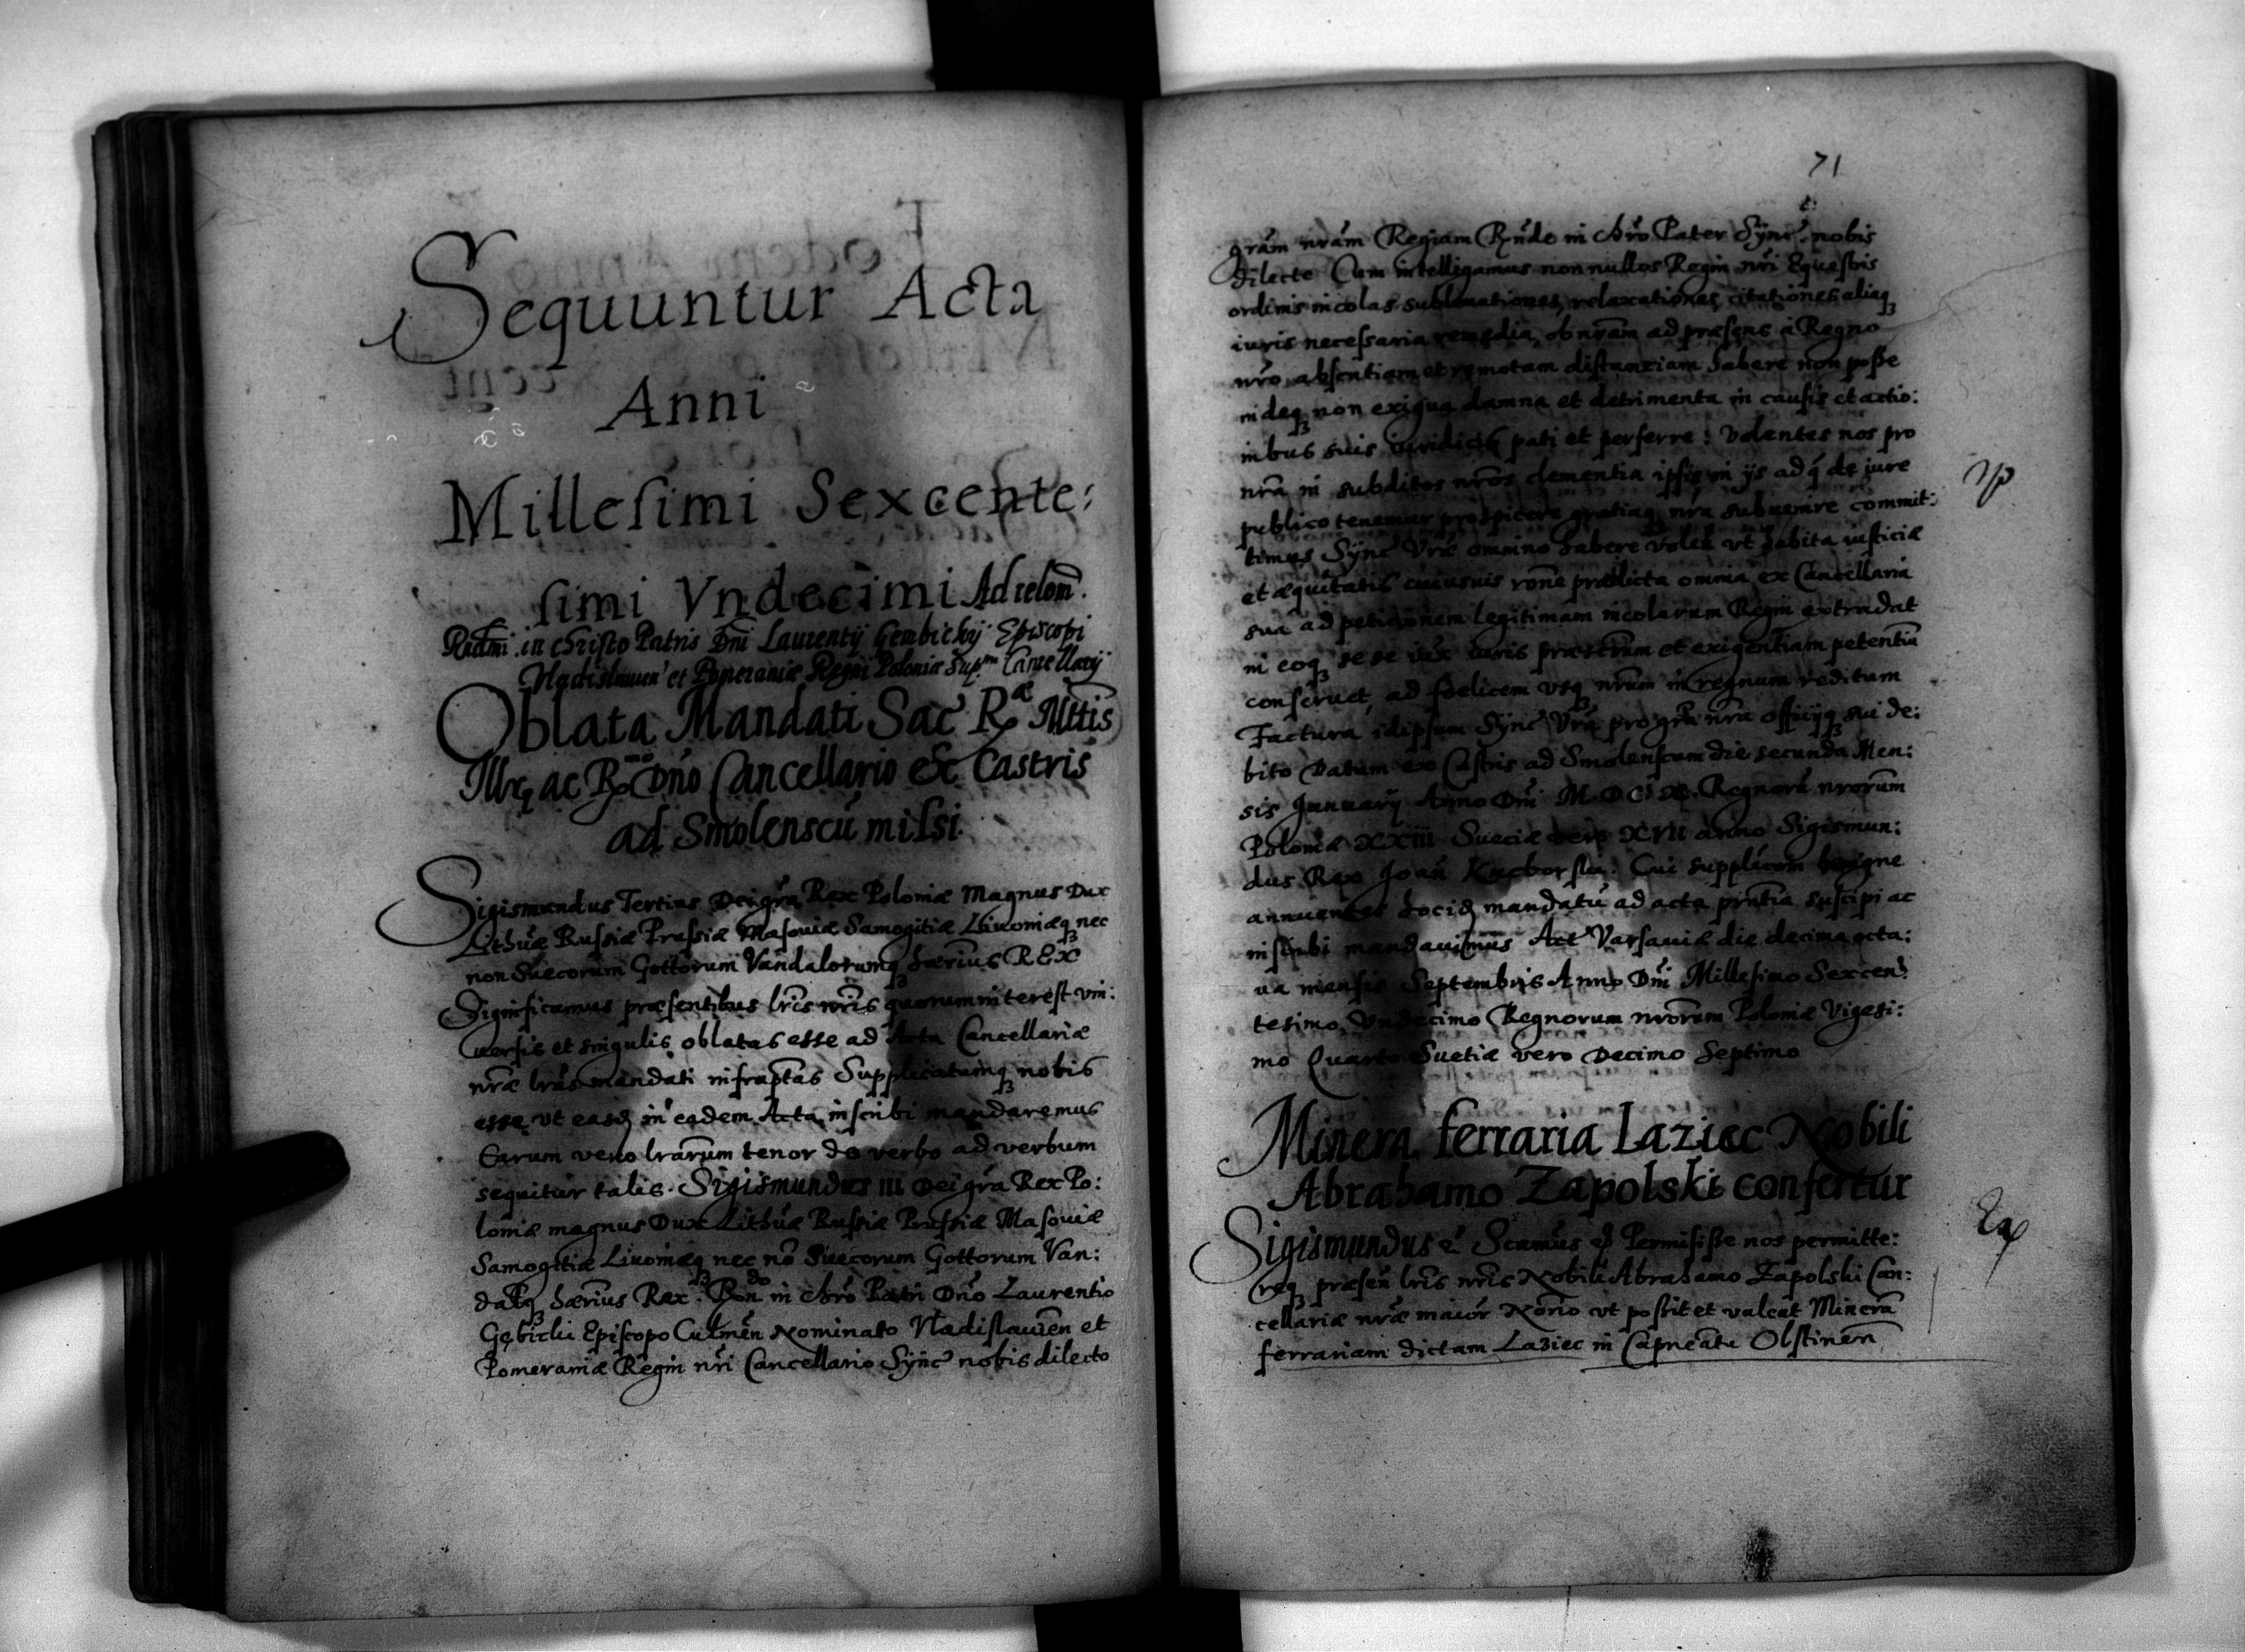 Sequuntur Acta
Anni
Millesimi Sexcente:
simi Vndecimi Ad relōm.
Rndmi in christo Patris Dni Laurentij Gembickij Episcopi
Vladislauien' et Pomeraniæ Regni Poloniæ Sup.m Cancellarij
Oblata Mandati Sac R.æ Mttis
Illrq ac R.mo Dño Cancellario ex Castris
ad Smolenscū missi
Sigismundus Tertius Dei grā Rex Poloniæ Magnus Dux
Lithūæ Russiæ Prussiæ Masouiæ Samogitiæ Liuoniæq nec
non Suecorum Gottorum Vandalorumq hærius REX
Significamus præsentibus lris nris quorum interest vni:
uersis et singulis oblatas esse ad Acta Cancellariæ
nræ lras mandati infraptas Supplicatumq nobis
esse vt easd in eadem Acta inscribi mandaremus
Earum vero lrarum tenor de verbo ad verbum
sequitur talis. Sigismundus III Dei grā Rex Po:
loniæ magnus Dux Lithūæ Russiæ Prussiæ Masouiæ
Samogitiæ Liuoniæq nec nō Suecorum Gottorum Van:
dalq hærius Rex. Rndo in chrō Patri Dño Laurentio
Gębicki Episcopo Culmēn Nominato Vladislauiēn et
Pomeraniæ Regni nri Cancellario Sync nobis dilecto
71
grām nrām Regiam Rnde in chrō Pater Sync nobis
dilecte Cum intelligamus nonnullos Regni nri Equestris
ordinis incolas sublouationes, relaxationes, citationes aliaq
iuris necessaria remedia, ob nrām ad præsens à Regno
nrō absentiam et remotam distantiam habere non posse
indeq non exigua damna et detrimenta in causis et actio:
nibus suis iuridicis pati et perferre: Volentes nos pro
nra in subditos nros clementia ipsis in ijs ad q de iure
publico tenemur prospicere gratiaq nra subuenire commit:
timus Sync Vræ omnino habere volen vt habita iusticiæ
et æquitatis cuiusuis rōne prædicta omnia ex Cancellaria
sua ad petitionem legitimam incolarum Regni extradat
in eoq sese iux iuris præscrum et exigentiam petentiū
conseruet, ad foelicem vsq nrum in regnum reditum
Factura idipsum Sync Vra pro grā nra officijq sui de:
bito Datum ex Castris ad Smolenscum die secunda Men:
sis Januarij Anno Dni M.DC.XI. Regnorū nrorum
Poloniæ XXIII Sueciæ vero XVII anno Sigismun:
dus Rex Joan Kucborski. Cui supplicōni benigne
annuentes hocid mandatū ad acta pñtia suscipi ac
inscribi mandauimus Act Varsauiæ die decima octa:
ua mensis Septembris Anno Dni Millesimo Sexcen:
tesimo Vndecimo Regnorum nrorum Poloniæ Vigesi:
mo Quarto Suetiæ vero Decimo Septimo
Minera ferraria Laziec Nobili
Abrahamo Zapolski confertur
Sigismundus & Scamus qd Permisisse nos permitte:
req præsen lris nris Nobili Abrahamo Zapolski Can:
cellariæ nræ maior Norio vt possit et valeat Minerā
ferrariam dictam Laziec in Capneātu Olstinen